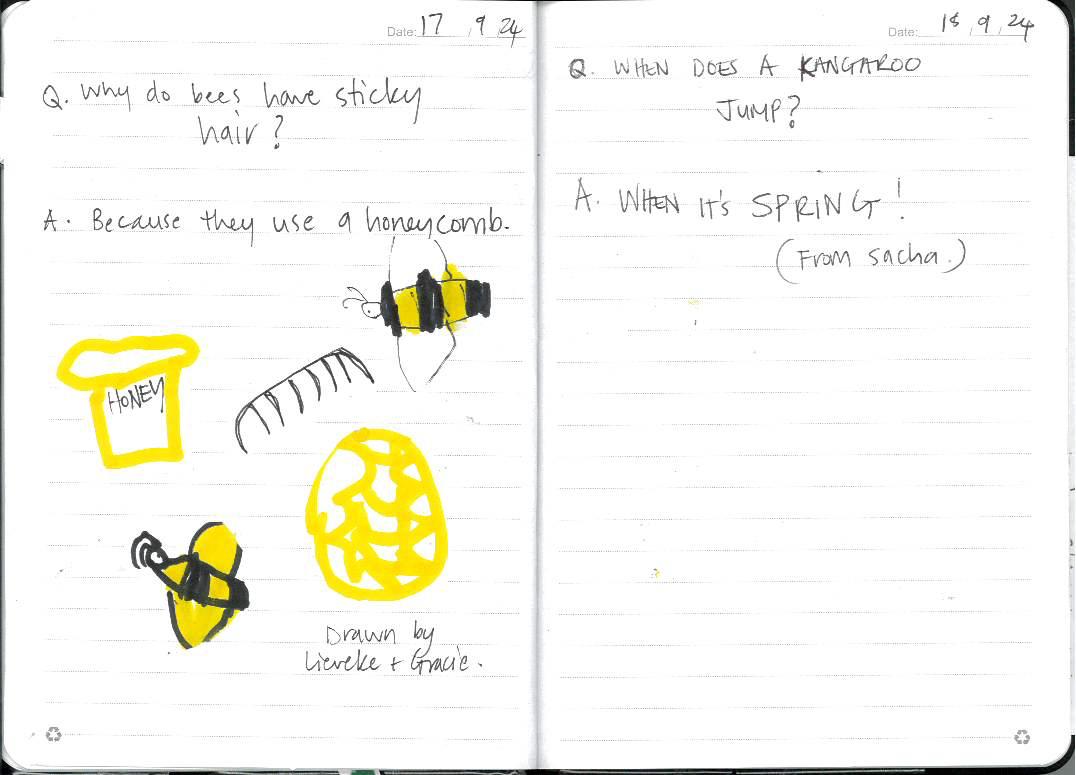 Date: 17 , 9 , 24
Q. Why do bees have sticky
hair?
A. Because they use a honeycomb.
HONEY
Drawn by
Lieveke + Gracie.
Date: 18 , 9 , 24
Q. WHEN DOES A KANGAROO
JUMP?
A. WHEN IT'S SPRING!
(From sacha.)